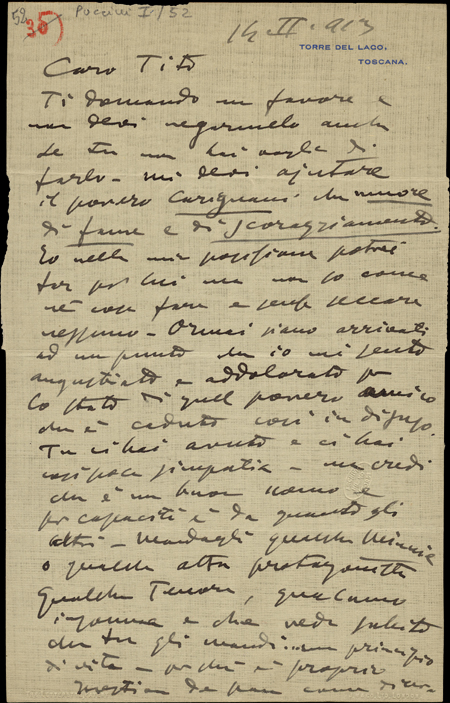 52
36)
Puccini I/52
14-II-913
TORRE DEL LAGO,
TOSCANA.
Caro Tito
Ti domando un favore e
non devi negarmelo anche
se tu non hai voglia di
farlo - mi devi ajutare
il povero Carignani che muore
di fame e di scoraggiamento.
Io nella mia posizione potrei
far per lui ma non so come
nè cosa fare e senza seccare
nessuno - Ormai siamo arrivati
ad un punto che io mi sento
angustiato e addolorato per
lo stato di quel povero amico
che è caduto così in disuso.
Tu ci hai avuto e ci hai
così poca simpatia - ma credi
che è un buon uomo e
per capacità è da quanto gli
altri - Mandagli qualche Minnie
o qualche altra protagonista
qualche Tenore, qualcuno
insomma e che veda subito
che tu gli mandi... un principio
di vita - perchè è proprio
question de pan come